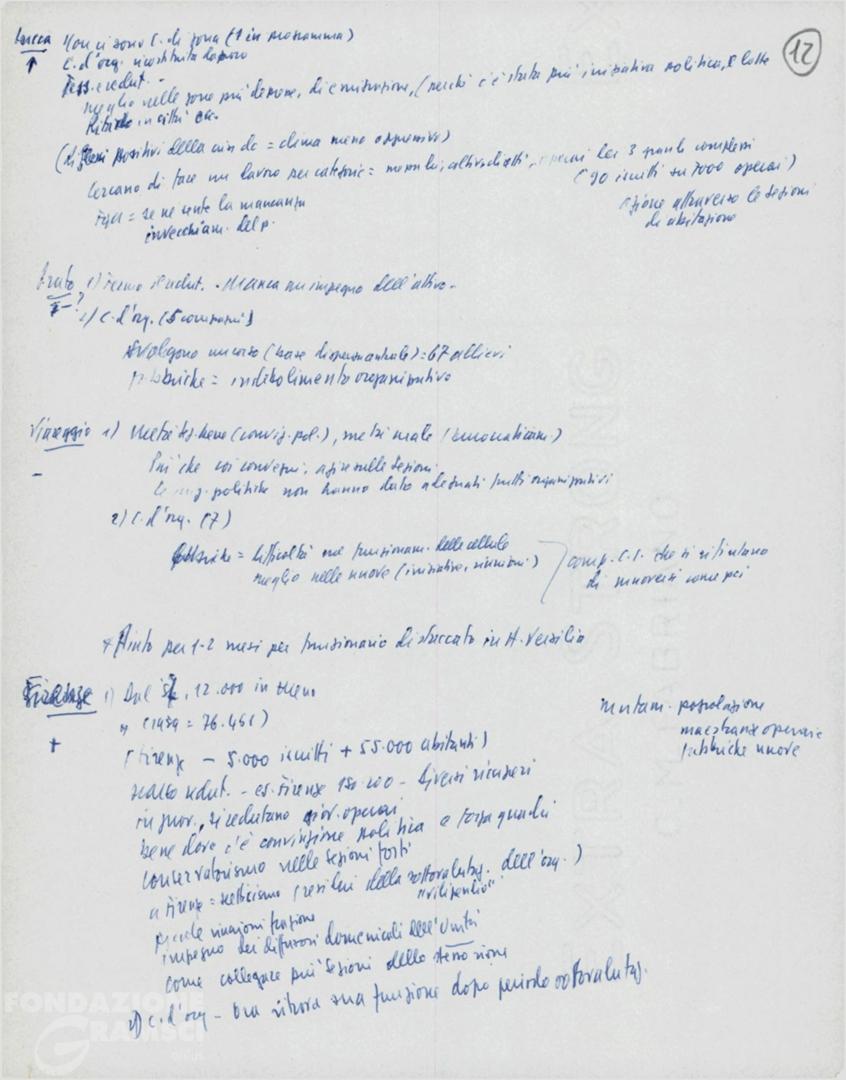 12
Lucca Non ci sono C. di zona (1 in programma)
C. d'org. ricostituita da poco
Tess. e reclut. -
meglio nelle zone più depresse, di emigrazione, (perché c'è stata più iniziativa politica, e lotte
Ritardo in città ecc.
(Riflessi positivi della crisi dc = clima meno oppressivo)
Cercano di fare un lavoro per categorie = operai dei 3 grandi complessi
(90 iscritti su 7000 operai)
azione attraverso le sezioni
di abitazione
FGCI = se ne sente la mancanza
invecchiam. del p.
Prato 1) Fermo il reclut. - Manca un impegno dell'attivo -
2) C. d'org. (5 compagni)
Svolgono un corso = 67 allievi
Fabbriche = indebolimento organizzativo
Viareggio 1) Metà tess. bene (convinz. pol.), metà male
Più che coi convegni, agire sulle sezioni
politiche non hanno dato adeguati frutti organizzativi
2) C. d'org. (7)
Fabbriche = difficoltà nel funzionam. delle cellule
meglio nelle nuove (iniziative, riunioni)
comp. C.I. che si rifiutano
di muoversi come pci
+ Aiuto per 1-2 mesi per funzionario distaccato in A. Versilia
Firenze 1) Dal 12.000 in meno
+
(Firenze - 5.000 iscritti + 55.000 abitanti)
Mutam. popolazione
maestranze operaie
fabbriche nuove
reclut. - es. Firenze - diversi ricuperi
in prov. si reclutano giov. operai
bene dove c'è convinzione politica e forza quadri
conservatorismo nelle sezioni forti
a Firenze = scetticismo (residui della sottovalutaz. dell'org.)
piccole riunioni
impegno dei diffusori domenicali dell'Unità
come collegare più sezioni dello stesso rione
2) C. d'org - Ora ritrova sua funzione dopo periodo sottovalutaz.
FONDAZIONE
GRAMSCI
onlus
EXTRA STRONG